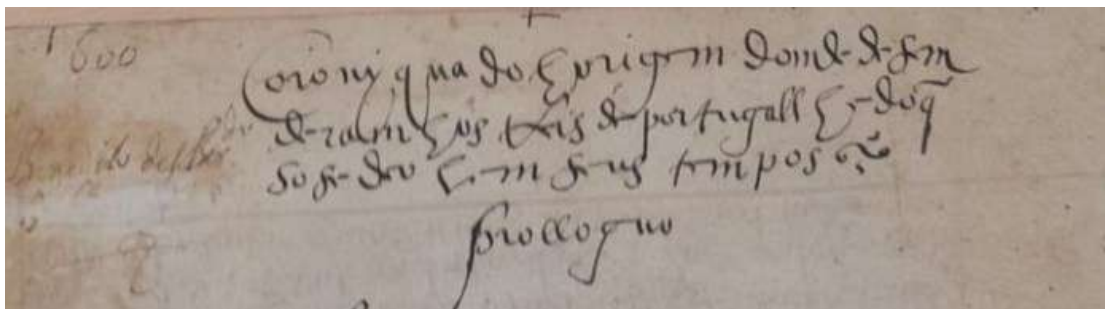 1600
Coroniqua do horigem domde desem
deram hos Reis de portugall he doq̃
sosedeo hem seus tempos
prolloguo